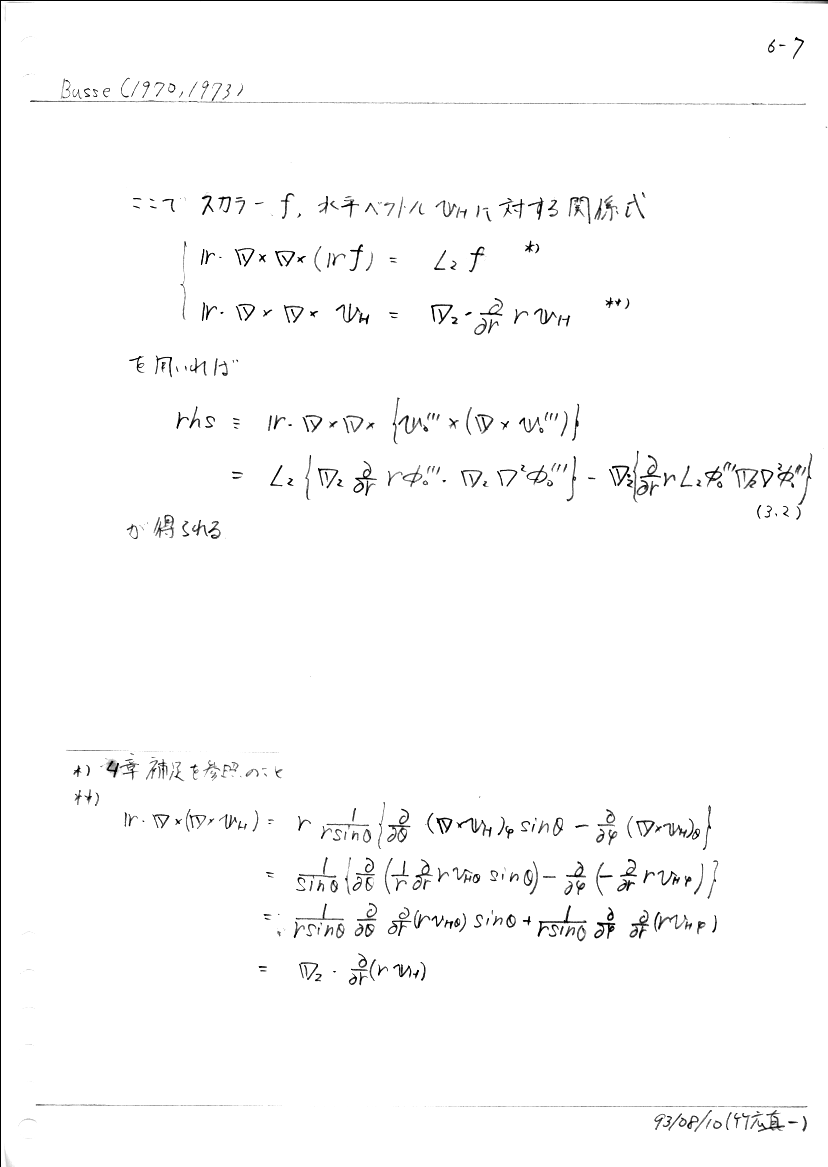 6-7
Busse (1970, 1973)
ここで スカラー f, 水平ベクトル 𝕧_H に 対する 関係式
𝕣・∇×∇×(𝕣f) = L₂ f *)
𝕣・∇×∇× 𝕧_H = ∇₂・∂/∂r r 𝕧_H **)
を用いれば
rhs ≡ 𝕣・∇×∇×{𝕧₀'''×(∇×𝕧₀''')}
= L₂{∇₂ ∂/∂r rΦ₀'''・∇₂∇²Φ₀'''} − ∇₂{∂/∂r r L₂Φ₀'''∇₂∇²Φ₀'''}
(3.2)
が得られる
*) 4章補足を参照のこと
**)
𝕣・∇×(∇×𝕧_H) = r 1/(r sinθ) {∂/∂θ (∇×𝕧_H)_φ sinθ − ∂/∂φ (∇×𝕧_H)_θ}
= 1/sinθ {∂/∂θ (1/r ∂/∂r r v_Hθ sinθ) − ∂/∂φ (−∂/∂r r v_Hφ)}
= 1/(r sinθ) ∂/∂θ ∂/∂r (r v_Hθ) sinθ + 1/(r sinθ) ∂/∂φ ∂/∂r (r v_Hφ)
= ∇₂・∂/∂r (r 𝕧_H)
93/08/10 (竹広真一)